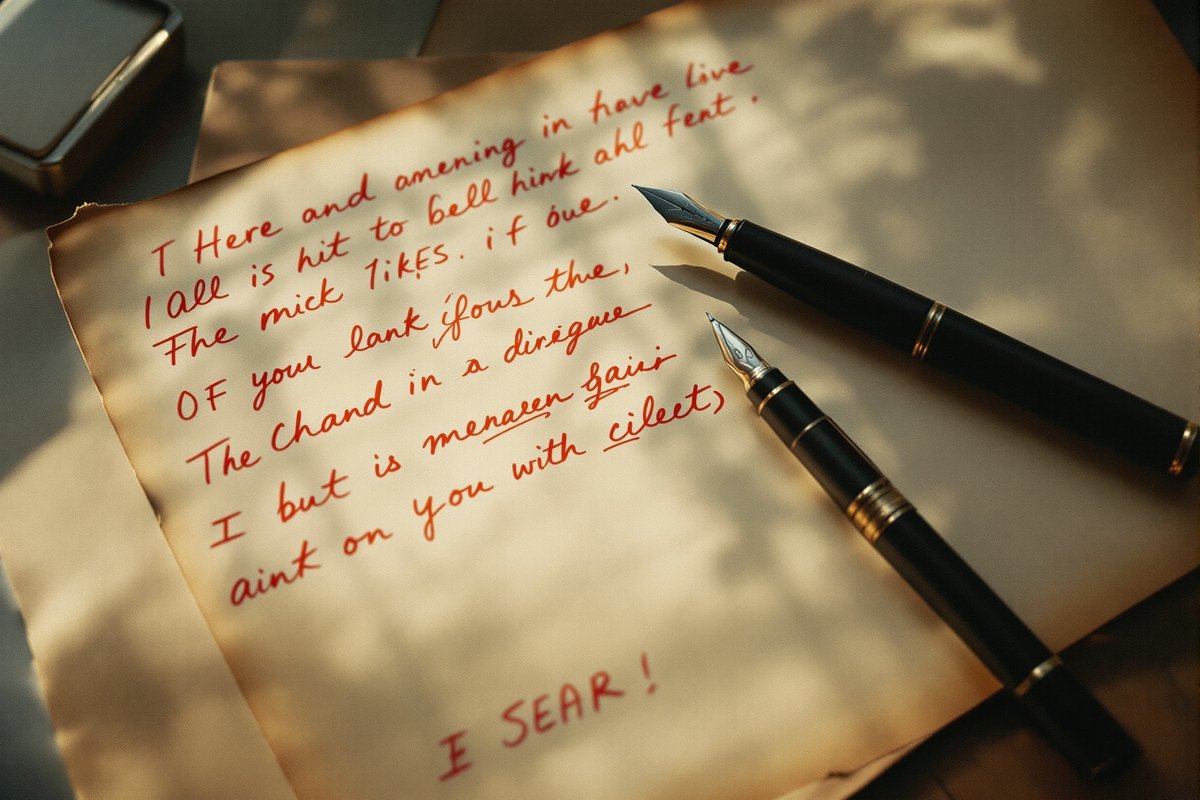 T Here and amening in have live
I all is hit to bell hink ahl fent.
Fhe mick likEs. if oue.
OF your lank ifous thue,
The Chand in a diregwe
I but is menaeen
aint on you with cileet)
I SEAR!